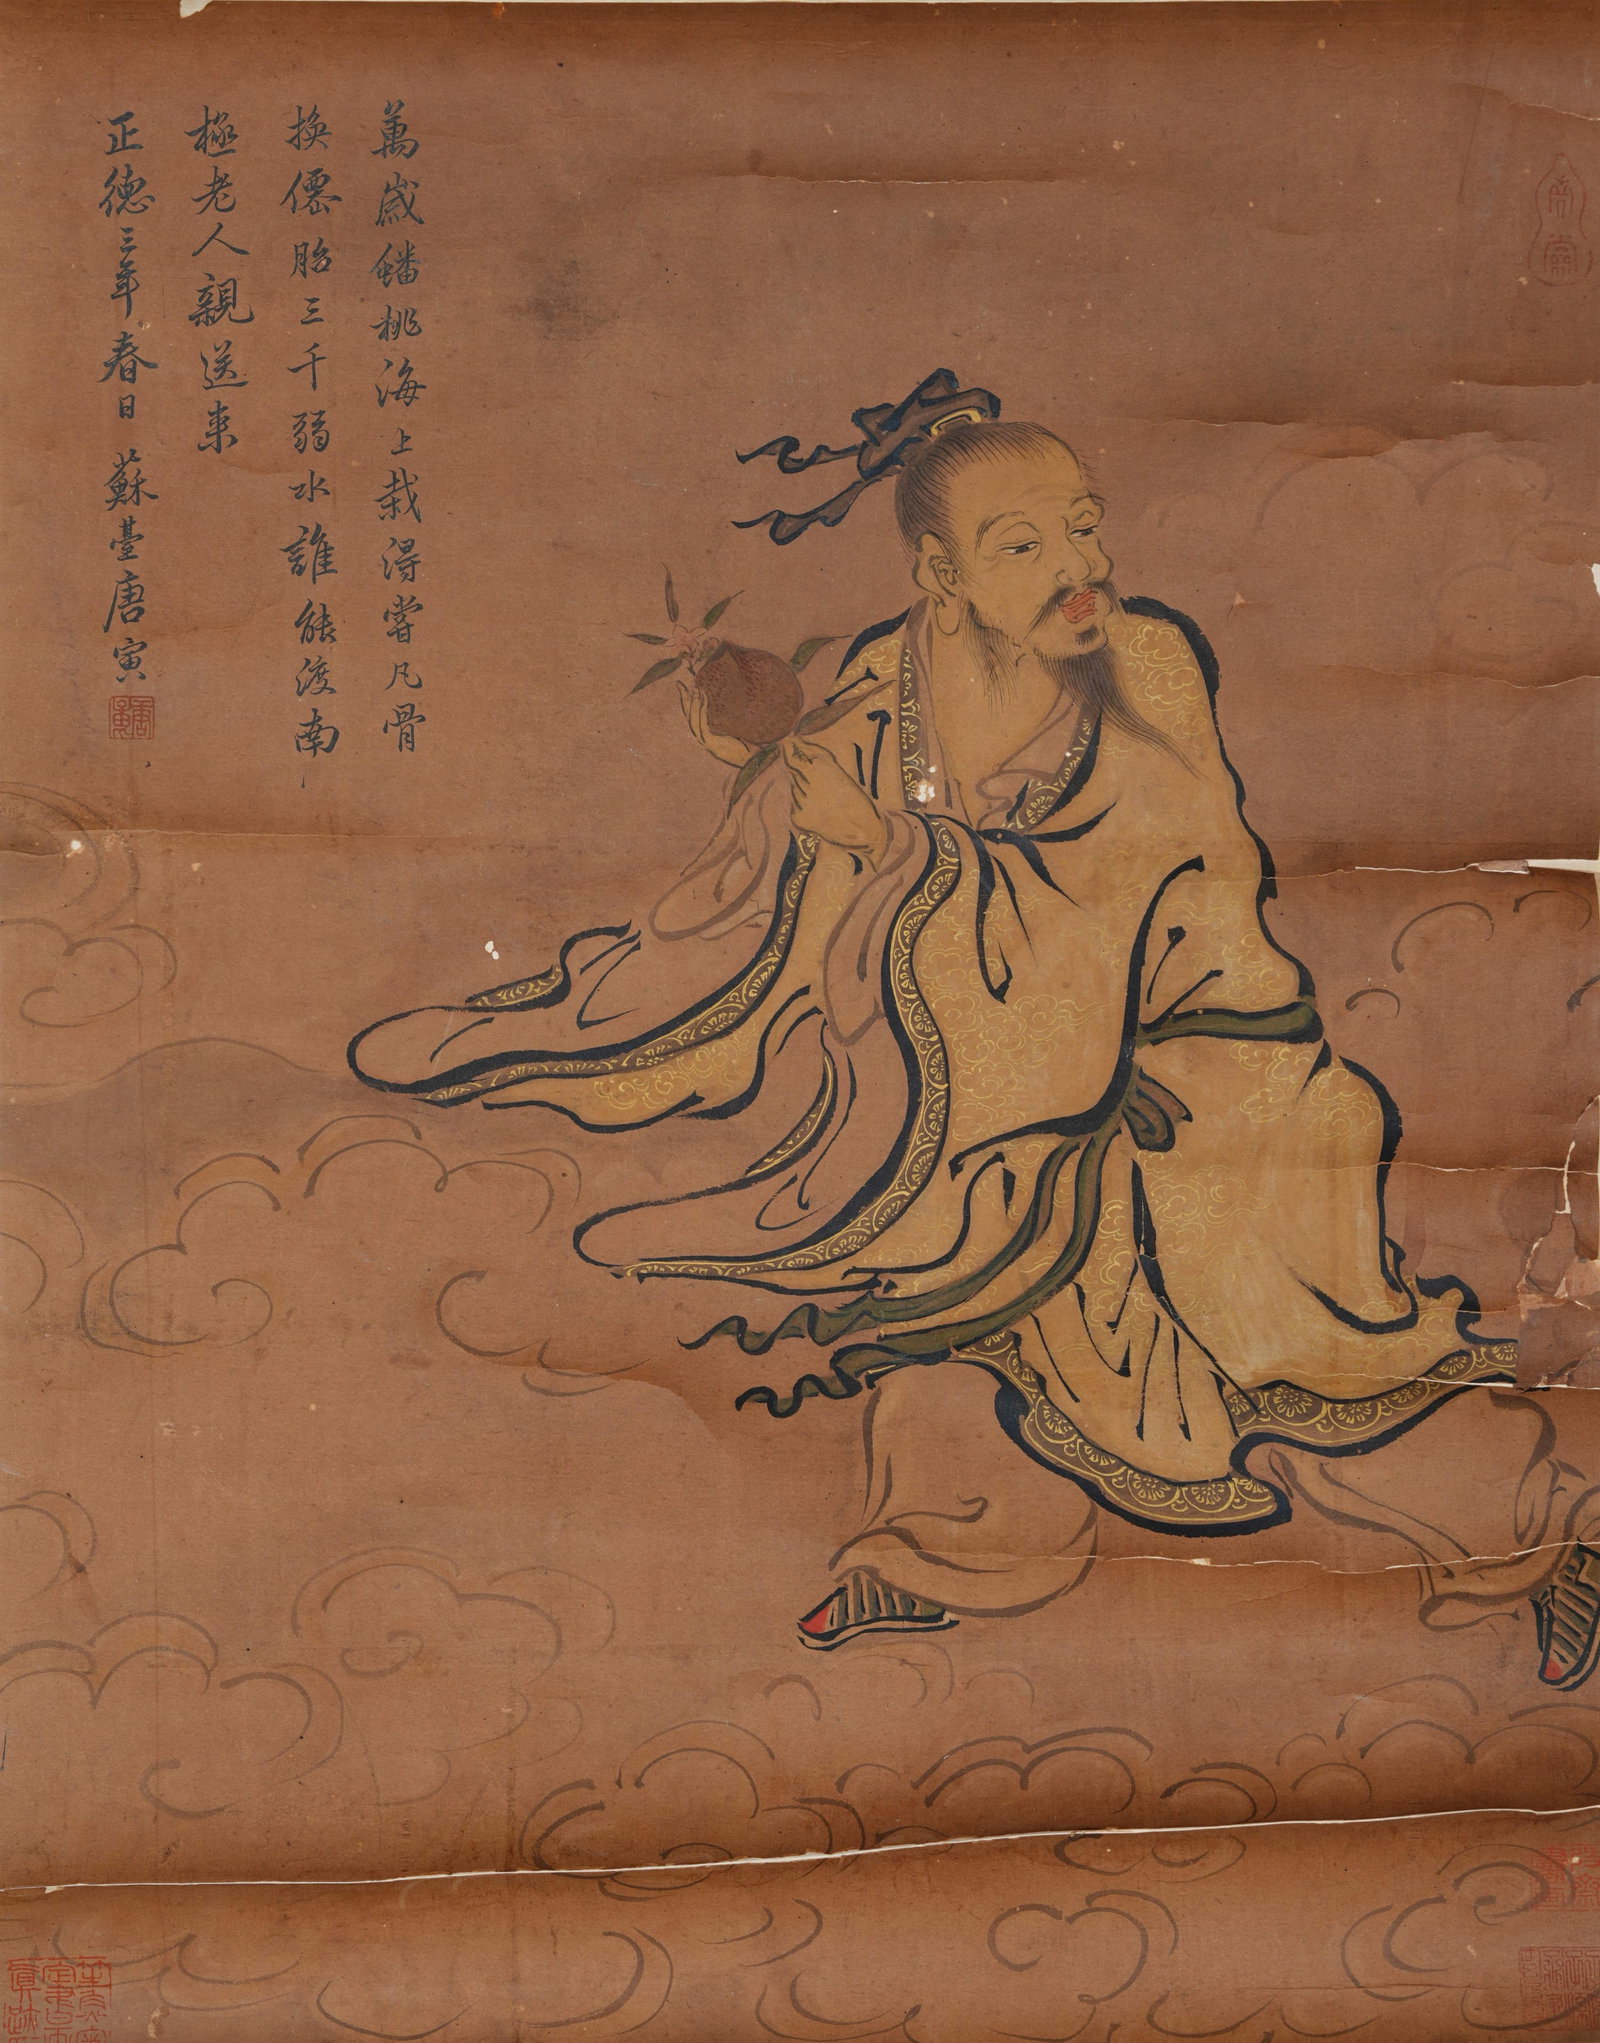 萬歲蟠桃海上栽得嘗凡骨
換僊胎三千弱水誰能渡南
極老人親送来
正德三年春日 蘇臺唐寅
唐寅